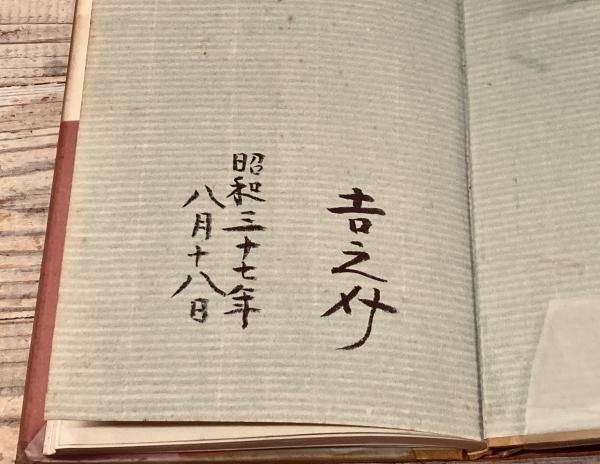 吉之介
昭和三十七年
八月十八日